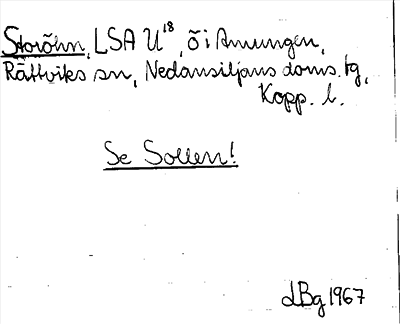 Storöhn, LSA U18, ö i Amungen,
Rättviks sn, Nedansiljans doms. tg,
Kopp. l.
Se Sollen!
LBg 1967